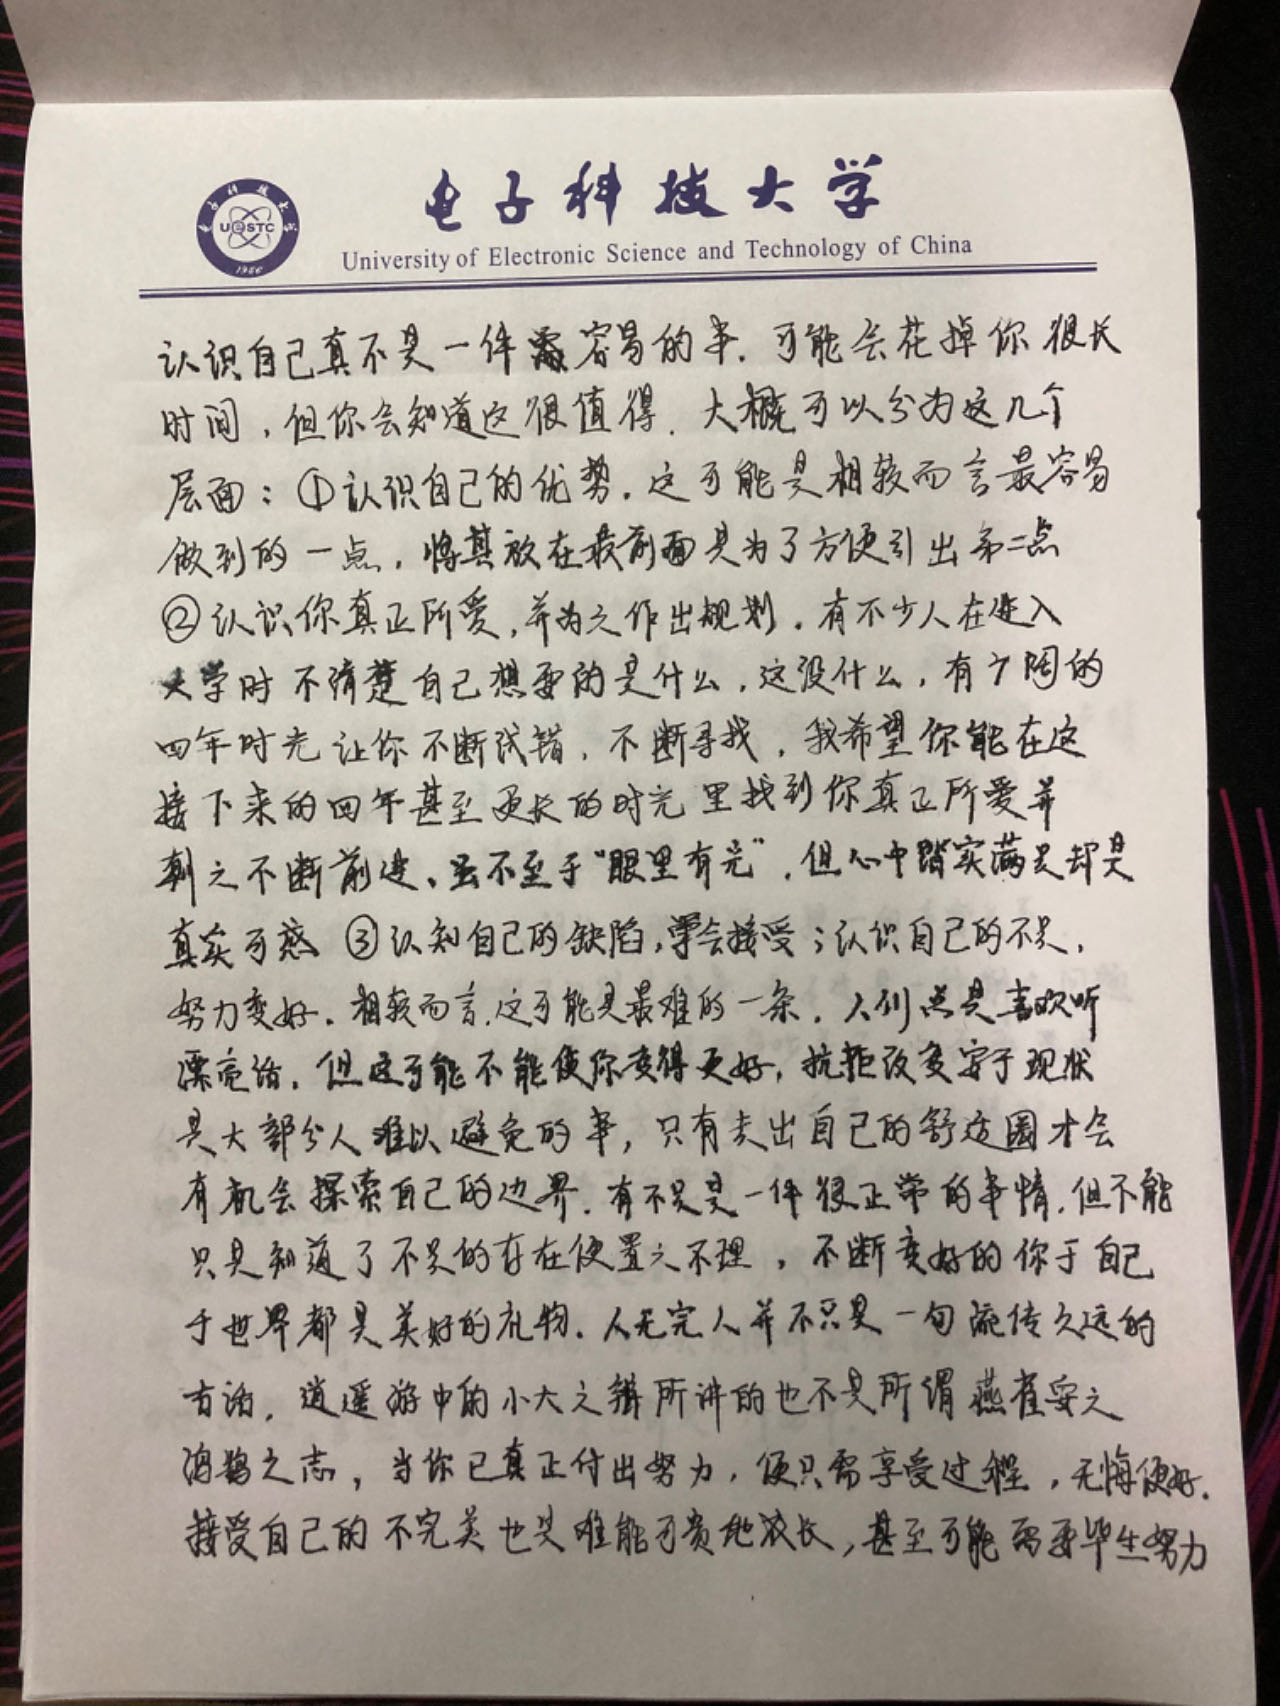 电子科技大学
University of Electronic Science and Technology of China
UESTC
1956
认识自己真不是一件容易的事.可能会花掉你很长
时间,但你会知道这很值得.大概可以分为这几个
层面:①认识自己的优势.这可能是相较而言最容易
做到的一点,将其放在最前面是为了方便引出第二点
②认识你真正所爱,并为之作出规划.有不少人在进入
大学时不清楚自己想要的是什么,这没什么,有的
四年时光让你不断试错,不断寻找,我希望你能在这
接下来的四年甚至更长的时光里找到你真正所爱并
朝之不断前进、虽不至于“眼里有光”,但心中踏实满足却是
真实可感 ③认知自己的缺陷,学会接受;认识自己的不足,
努力变好.相较而言,这可能是最难的一条.人们总是喜欢听
漂亮话,但这可能不能使你变得更好,抗拒改变安于现状
是大部分人难以避免的事,只有走出自己的舒适圈才会
有机会探索自己的边界.有不足是一件很正常的事情,但不能
只是知道了不足的存在便置之不理,不断变好的你于自己
于世界都是美好的礼物.人无完人并不只是一句流传久远的
古话,逍遥游中的小大之辩所讲的也不是所谓燕雀安之
鸿鹄之志,当你已真正付出努力,便只需享受过程,无悔便好.
接受自己的不完美也是难能可贵地成长,甚至可能需要毕生努力